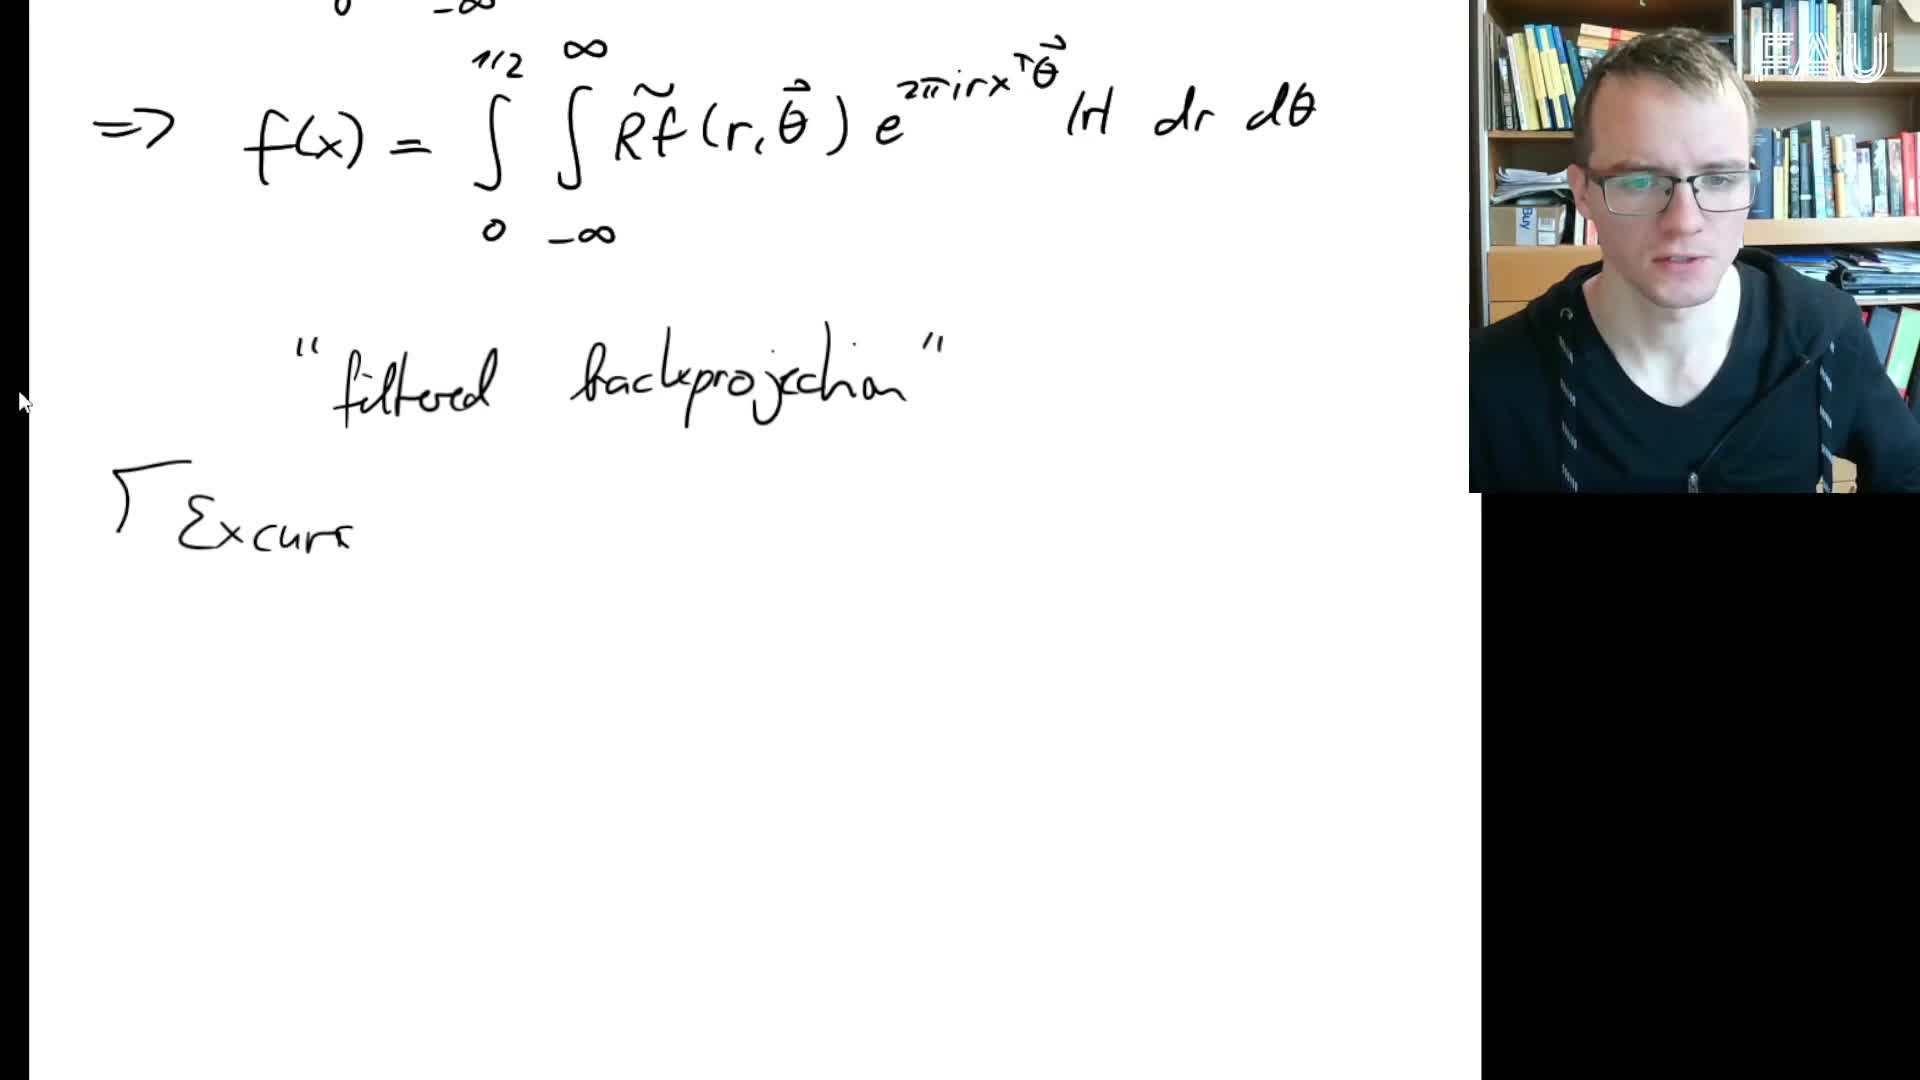 0 -∞
1/2 ∞
=> f(x) = ∫ ∫ R̃f(r, θ⃗) e^{2πirx^Tθ⃗} |r| dr dθ
0 -∞
"filtered backprojection"
Excurs
FAU
Buy